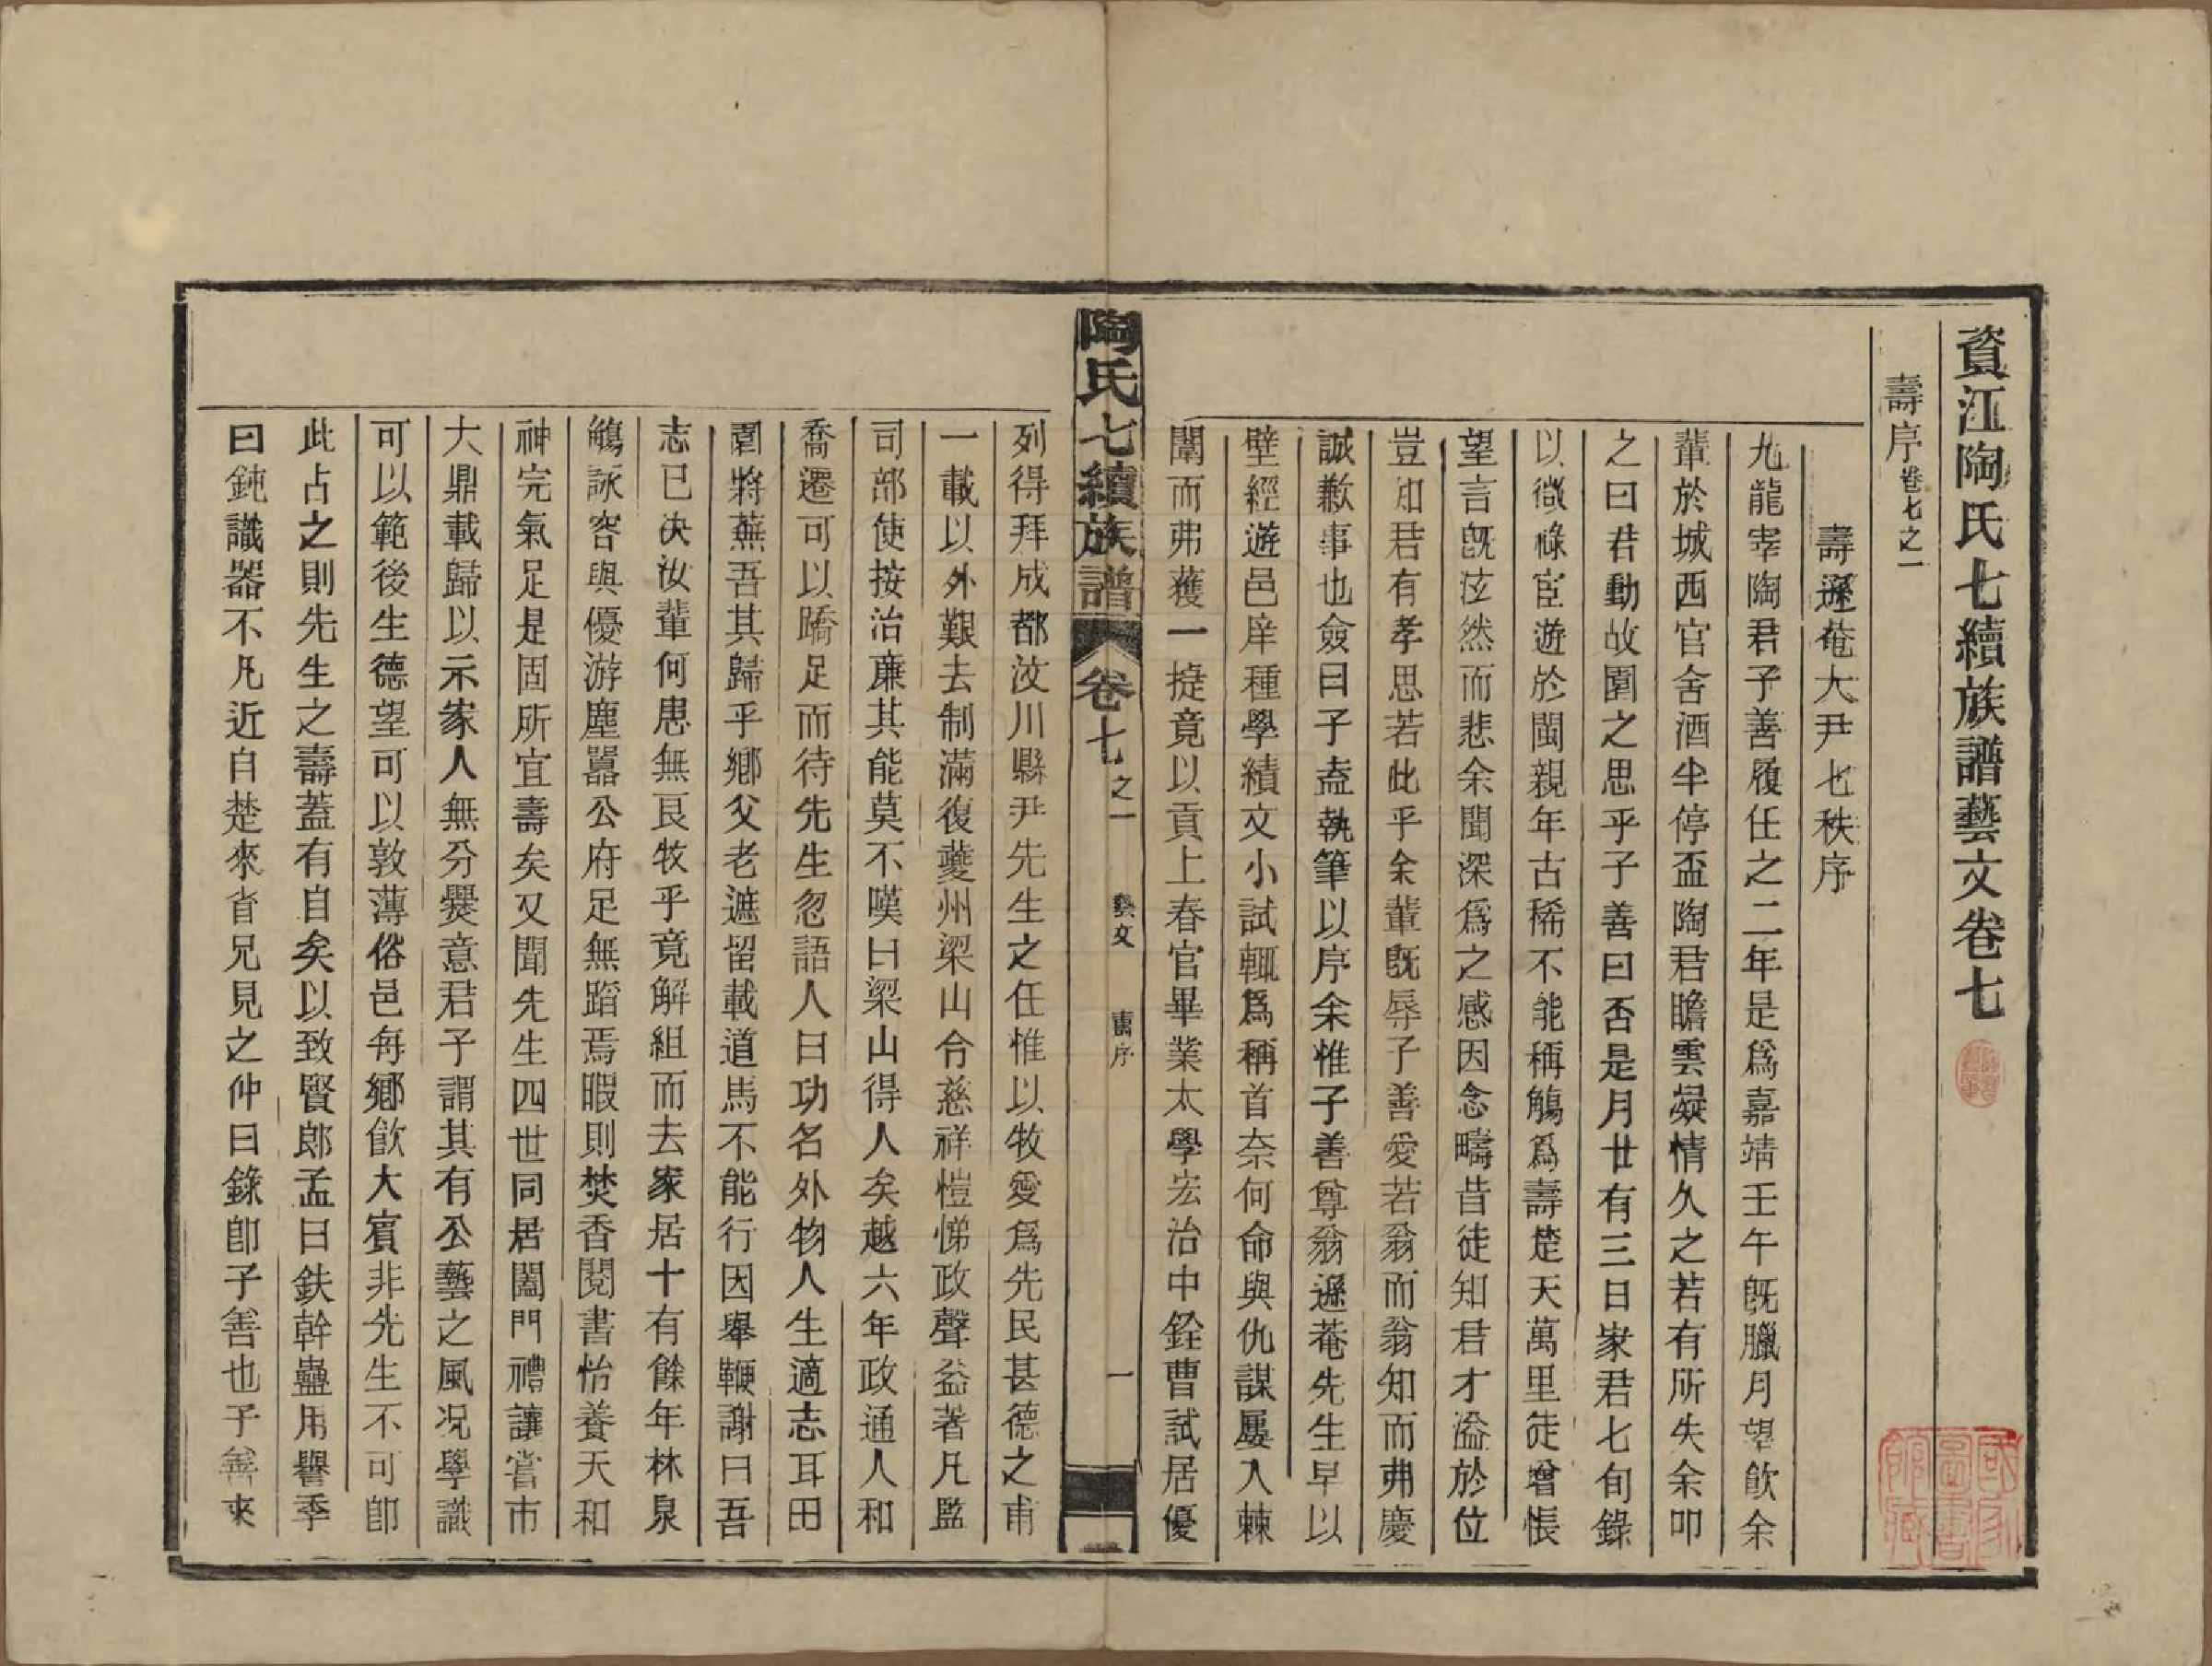 資江陶氏七續族譜藝文卷七
壽序卷七之一
壽遜菴大尹七秩序
九龍宰陶君子善履任之二年是爲嘉靖壬午既臘月望飲余
輩於城西官舍酒半停盃陶君瞻雲凝情久之若有所失余叩
之曰君動故園之思乎子善曰否是月廿有三日家君七旬錄
以微祿宦遊於閩親年古稀不能稱觴爲壽楚天萬里徒增悵
望言既泫然而悲余聞深爲之感因念疇昔徒知君才溢於位
豈知君有孝思若此乎余輩既辱子善愛若翁而翁知而弗慶
誠歉事也僉曰子盍執筆以序余惟子善尊翁遜菴先生早以
壁經遊邑庠種學績文小試輒爲稱首奈何命與仇謀屢入棘
闈而弗獲一捷竟以貢上春官畢業太學宏治中銓曹試居優
陶氏七續族譜 卷七之一 藝文 壽序 一
列得拜成都汶川縣尹先生之任惟以牧愛爲先民甚德之甫
一載以外艱去制滿復夔州梁山令慈祥愷悌政聲益著凡監
司部使按治廉其能莫不嘆曰梁山得人矣越六年政通人和
喬遷可以蹻足而待先生忽語人曰功名外物人生適志耳田
園將蕪吾其歸乎鄉父老遮留載道馬不能行因舉鞭謝曰吾
志已决汝輩何患無良牧乎竟解組而去家居十有餘年林泉
觴詠容與優游塵囂公府足無蹈焉暇則焚香閱書怡養天和
神完氣足是固所宜壽矣又聞先生四世同居闔門禮讓嘗市
大鼎載歸以示家人無分爨意君子謂其有公藝之風况學識
可以範後生德望可以敦薄俗邑每鄉飲大賓非先生不可卽
此占之則先生之壽蓋有自矣以致賢郎孟曰鈇幹蠱用譽季
曰鈍識器不凡近自楚來省兄見之仲曰錄卽子善也子善來